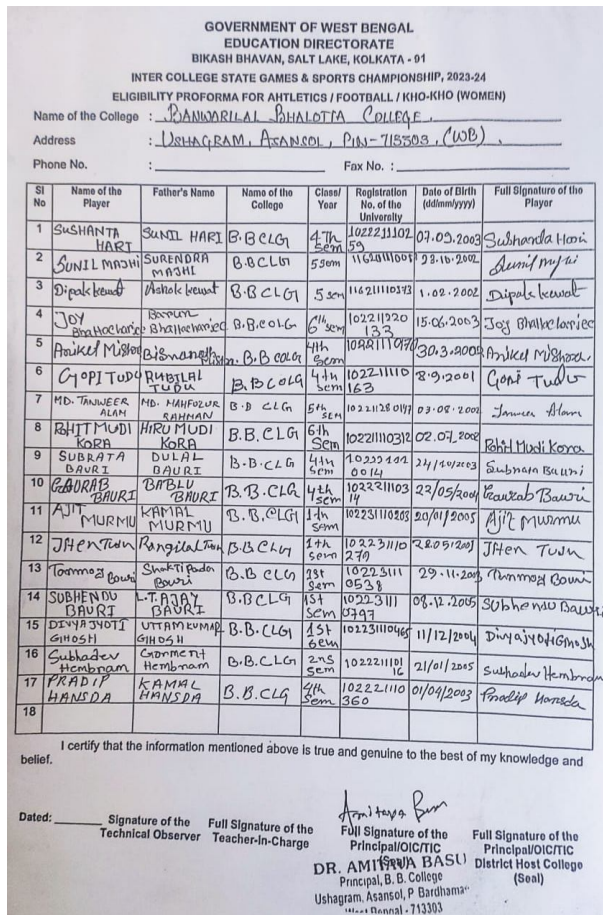 GOVERNMENT OF WEST BENGAL
EDUCATION DIRECTORATE
BIKASH BHAVAN, SALT LAKE, KOLKATA - 91
INTER COLLEGE STATE GAMES & SPORTS CHAMPIONSHIP, 2023-24
ELIGIBILITY PROFORMA FOR AHTLETICS / FOOTBALL / KHO-KHO (WOMEN)
Name of the College : BANWARILAL BHALOTIA COLLEGE.
Address : USHAGRAM, ASANSOL, PIN-713303, (WB).
Phone No. : Fax No. :
Sl No Name of the Player Father's Name Name of the College Class/ Year Registration No. of the University Date of Birth (dd/mm/yyyy) Full Signature of the Player
1 SUSHANTA HARI SUNIL HARI B.B CLG 4Th sem 07.09.2003
2 SUNIL MAJHI SURENDRA MAJHI B.B CLG 5 sem
3 Dipak kewat Ashok kewat B.B CLG 5 sem 1.02.2002 Dipak kewat
4 JOY Bhattacharjee Bhattacharjee B.B.COLG 6th sem 102211220 133 15.06.2003 Joy Bhattacharjee
5 Aniket B.B COLG 4th Sem
6 GOPI TUDU RABILAL TUDU B.B COLG 4th sem 102211110 163 8.9.2001 Gopi Tudu
7 MD. TANWEER ALAM MD. MAHFOZUR RAHMAN B.B CLG 5th sem 03.08.2002 Alam
8 ROHIT MUDI KORA HIRU MUDI KORA B.B.CLG 6th Sem 102211110312 02.07.2002 Rohit Mudi Kora
9 SUBRATA BAURI DULAL BAURI B.B.CLG 4th sem 24/10/2003 Bauri
10 GOURAB BAURI BABLU BAURI B.B.CLG 4th sem 1022211103 14 Gourab Bauri
11 AJIT MURMU KAMAL MURMU B.B.CLG 1th sem 102231110203 20/01/2005 Ajit Murmu
12 B.B CLG 1th sem 102231110 279
13 Bouri Shaktipada Bouri B.B CLG 1st sem 10223111 0538 Bouri
14 SUBHENDU BAURI L.T. AJAY BAURI B.B CLG 1st sem 10223111 0797 08.12.2005 Subhendu Bauri
15 DIVYAJYOTI GHOSH UTTAM KUMAR GHOSH B.B.CLG 1st sem 102231110465 11/12/2004 Divyajyoti Ghosh
16 Subhadev Hembram Hembram B.B.CLG 2nd sem 1022211101 16 21/01/2005 Subhadev Hembram
17 PRADIP HANSDA KAMAL HANSDA B.B.CLG 4th sem 102221110 360 01/04/2003 Pradip Hansda
18
I certify that the information mentioned above is true and genuine to the best of my knowledge and
belief.
Dated: Signature of the Technical Observer Full Signature of the Teacher-In-Charge Full Signature of the Principal/OIC/TIC (Seal) Full Signature of the Principal/OIC/TIC District Host College (Seal)
DR. AMITAVA BASU
Principal, B. B. College
Ushagram, Asansol, P Bardhaman
West Bengal - 713303